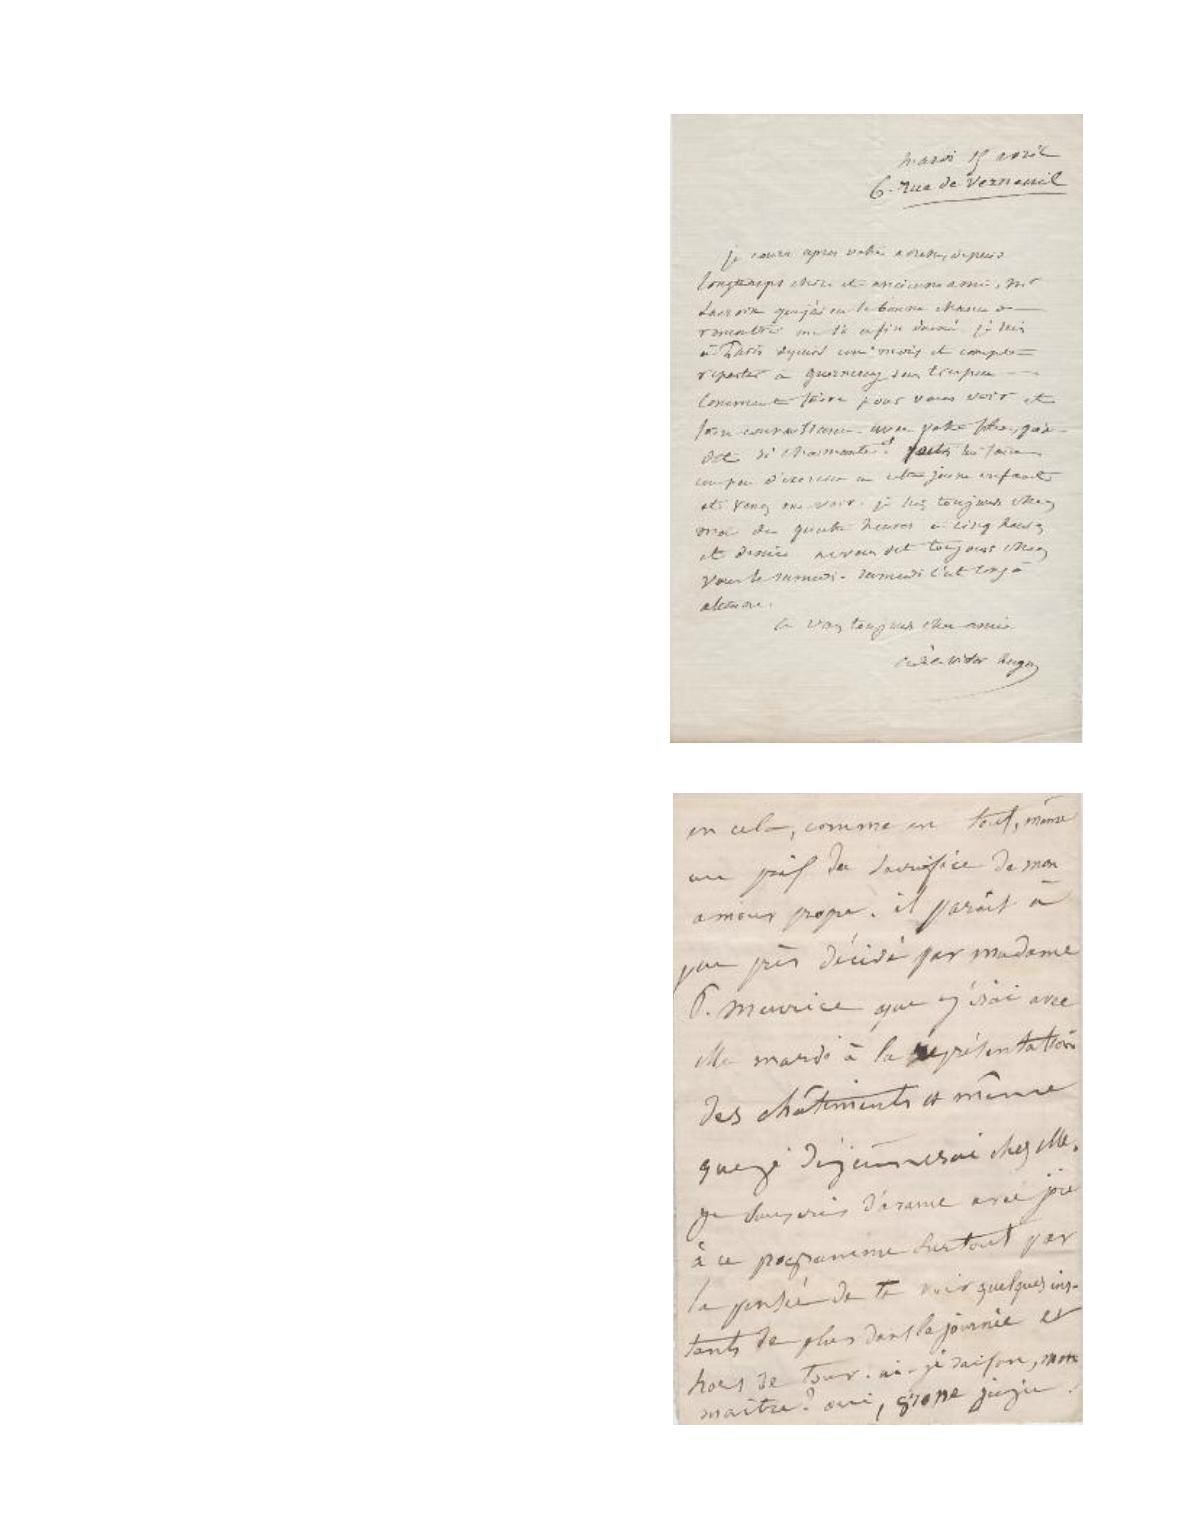 mardi 15 avril
6. rue de Verneuil
je cours après votre adresse, depuis
longtemps chère et ancienne amie, mr
Lacroix que j'ai eu la bonne chance de
rencontrer me l'a enfin donné. je suis
à Paris depuis un mois et compte
repartir à guernesey sous
Comment faire pour vous voir et
faire connaissance avec votre fille, qu'on
dit si charmante?
un peu d'exercice à cette jeune enfant
et venez me voir. je suis toujours chez
moi de quatre heures à cinq heures
et demie. ne vous dit toujours chez
vous le samedi. samedi c'est long à
attendre.
à vous toujours chère amie
adèle victor hugo
en cela, comme en tout, même
au prix du sacrifice de mon
amour propre. il paraît à
peu près décidé par madame
P. Meurice que j'irai avec
elle mardi à la représentation
des châtiments et même
que je déjeunerai chez elle.
je souscris d'avance avec joie
à ce programme surtout par
la pensée de te voir quelques ins-
tants de plus dans la journée et
hors de tour. ai-je raison, mon
maître? oui, grosse juju.